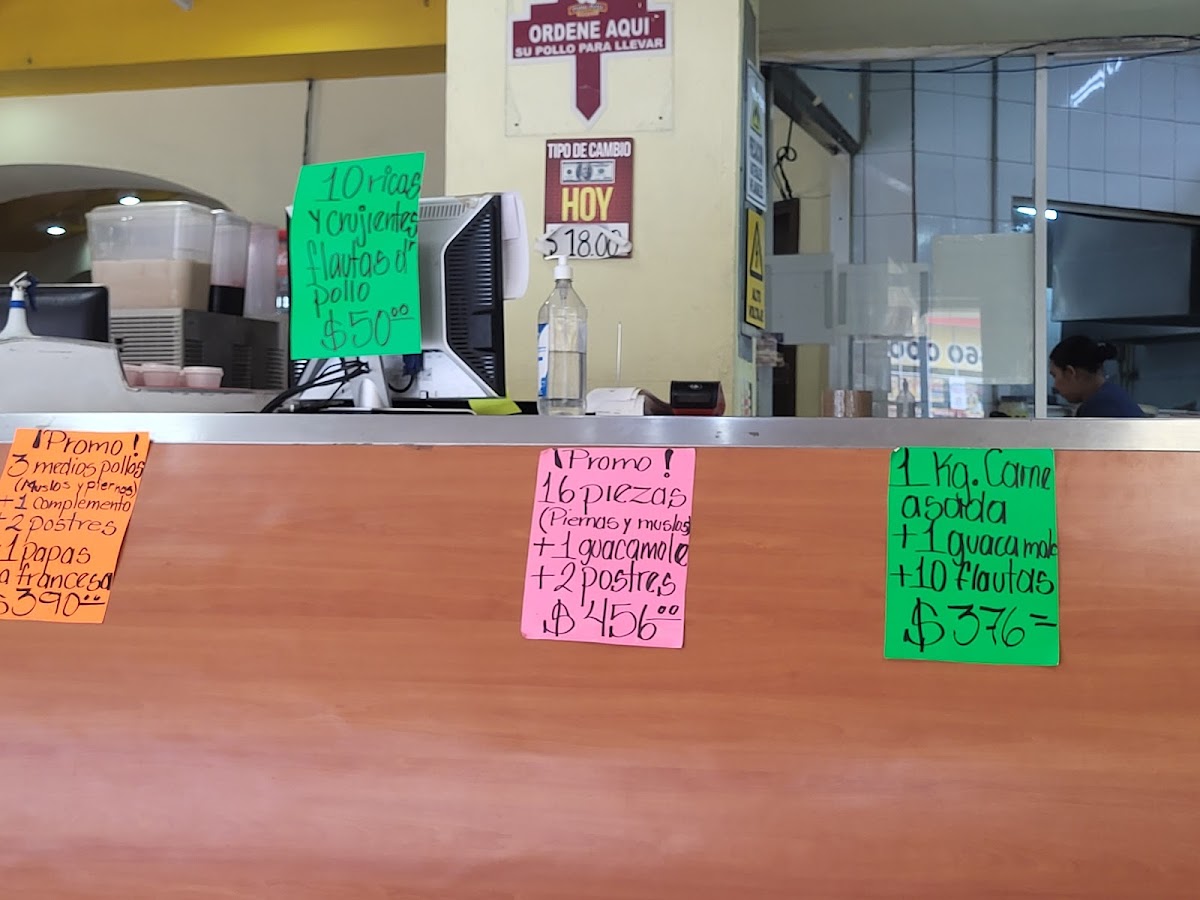 ORDENE AQUI
SU POLLO PARA LLEVAR
TIPO DE CAMBIO
HOY
$ 18.00
10 ricas
y crujientes
flautas d'
pollo
$50.00
ALTO
VOLTAJE
¡Promo!
3 medios pollos
(Muslos y piernas)
+1 complemento
+2 postres
+1 papas
a francesa
$390.00
¡Promo!
16 piezas
(Piernas y muslos)
+1 guacamole
+2 postres
$ 456.00
1 Kg. Carne
asada
+1 guacamole
+10 flautas
$376=